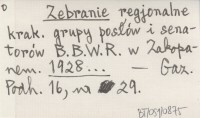 Zebranie regjonalne
krak. grupy posłów i sena-
torów B.B.W.R. w Zakopa-
nem. 1928... — Gaz.
Podh. 16, na 29.